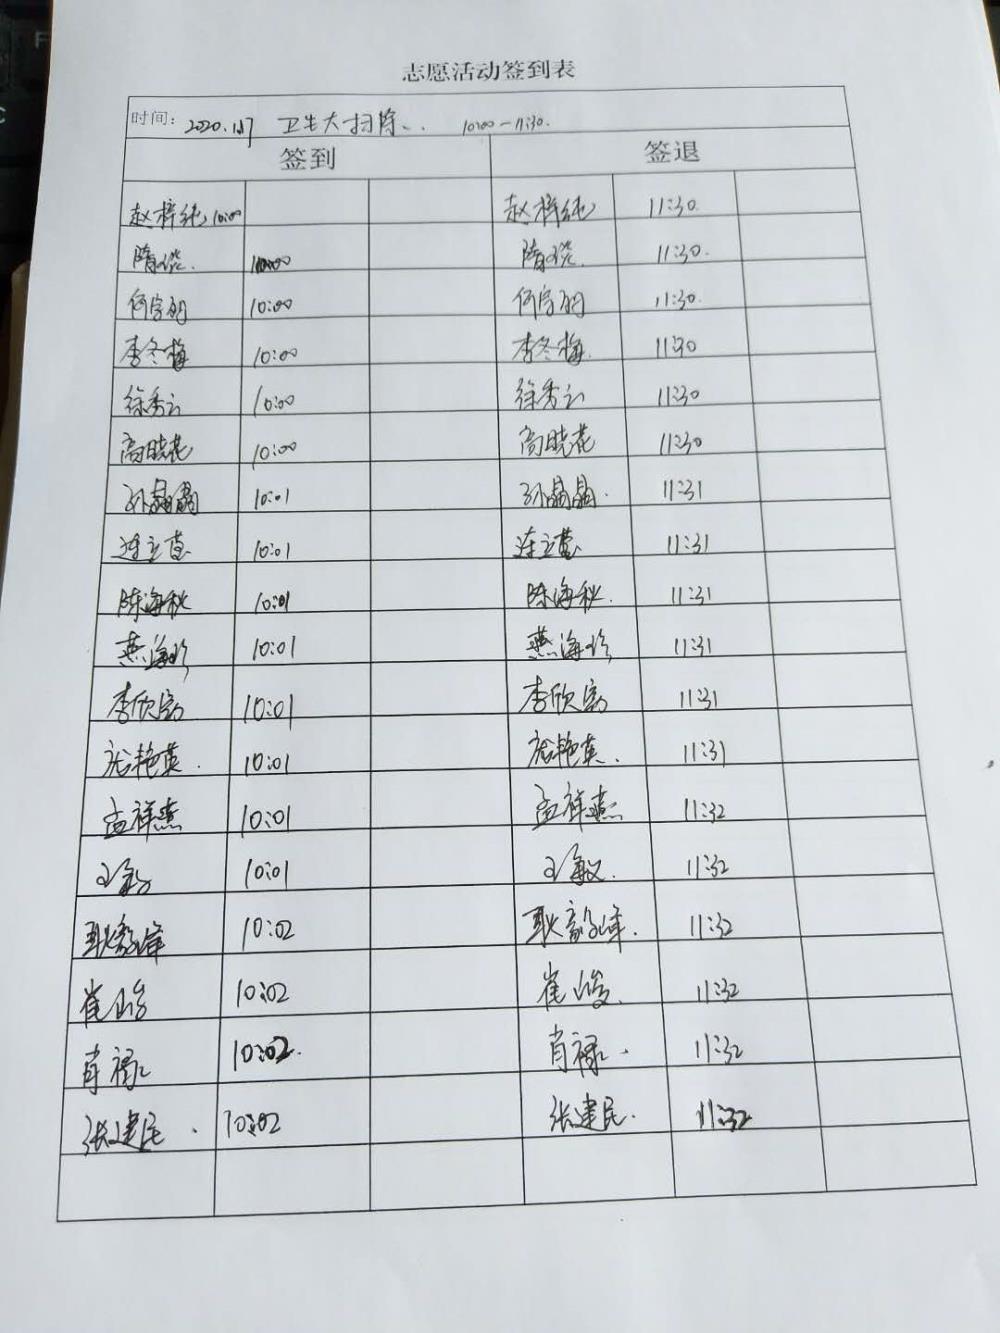 志愿活动签到表
时间: 卫生大扫除.. 10:00-11:30.
签到 签退
赵梓纯 10:00 赵梓纯 11:30.
隋 10:00 隋 11:30.
何 10:00 何 11:30.
李冬梅 10:00 李冬梅. 11:30
徐秀云 10:00 徐秀云 11:30
高晓花 10:00 高晓花 11:30
孙晶晶 10:01 孙晶晶. 11:31
连立 10:01 连立 11:31
陈海秋 10:01 陈海秋. 11:31
燕海珍 10:01 燕海珍 11:31
李欣 10:01 李欣 11:31
艳英. 10:01 艳英. 11:31
孟祥燕 10:01 孟祥燕 11:32
王敏 10:01 王敏. 11:32
耿毅峰 10:02 耿毅峰. 11:32
崔峻 10:02 崔峻. 11:32
肖禄 10:02. 肖禄. 11:32
张建民. 10:02 张建民. 11:32